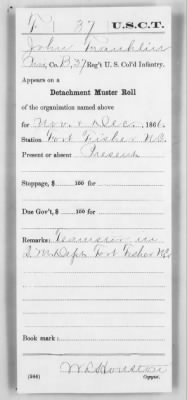 F 37 U.S.C.T.
John Franklin
Co. B, 37 Reg't U. S. Col'd Infantry.
Appears on a
Detachment Muster Roll
of the organization named above
for Nov. & Dec., 1866.
Station Fort Fisher N.C.
Present or absent Present
Stoppage, $ 100 for
Due Gov't, $ 100 for
Remarks: Teamster in
Q. M. Dept. Fort Fisher N.C.
Book mark:
(366)
Copyist.